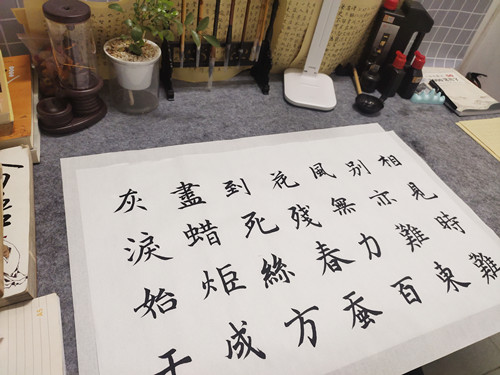 相見時難
別亦難東
風無力百
花残春蚕
到死絲方
盡蜡炬成
灰淚始干